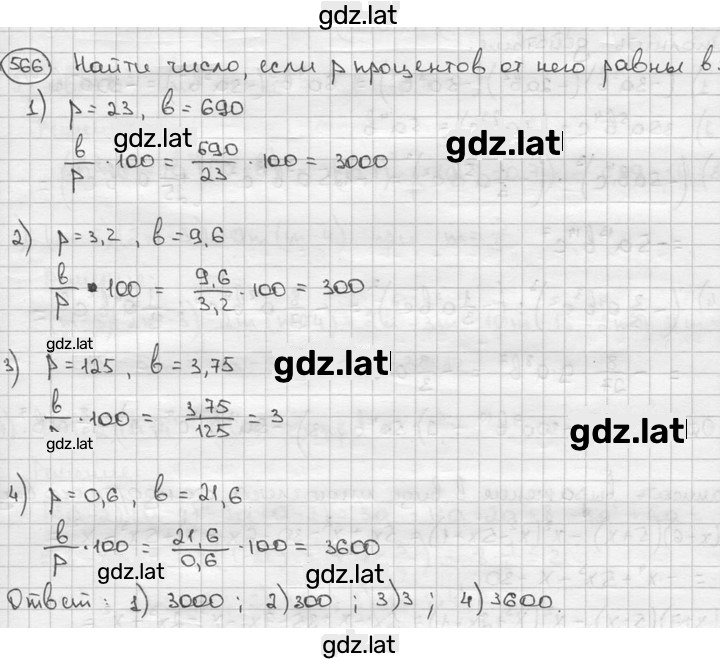 gdz.lat
566 Найти число, если р процентов от него равны в.
1) р = 23, в = 690
gdz.lat
gdz.lat
в/р · 100 = 690/23 · 100 = 3000
2) р = 3,2 , в = 9,6
в/р · 100 = 9,6/3,2 · 100 = 300
gdz.lat
3) р = 125 , в = 3,75
gdz.lat
в/ · 100 = 3,75/125 = 3
gdz.lat
gdz.lat
4) р = 0,6 , в = 21,6
в/р · 100 = 21,6/0,6 · 100 = 3600
gdz.lat
gdz.lat
Ответ : 1) 3000 ; 2) 300 ; 3) 3 ; 4) 3600.
gdz.lat